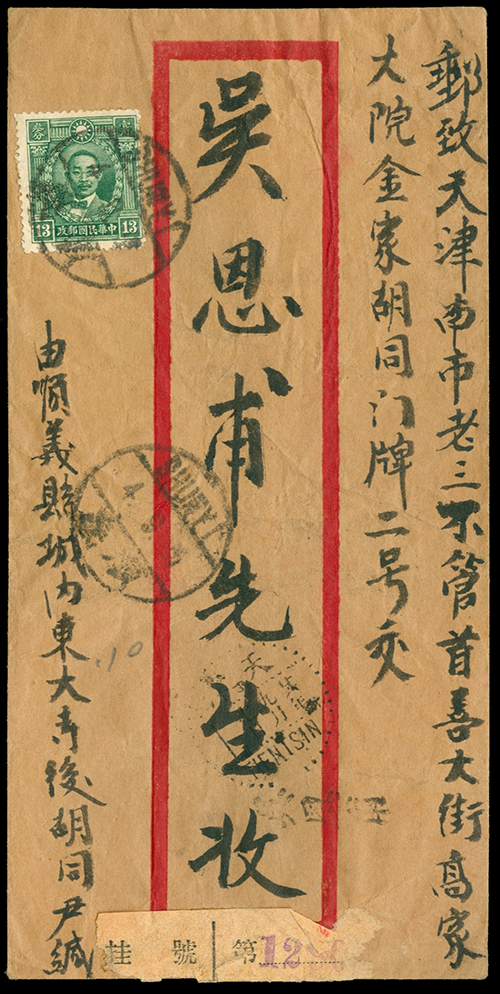 郵致天津南市老三不管首善大街高家
大院金家胡同门牌二号交
吴恩甫先生收
由順義縣城内東大寺後胡同尹緘
13 中華民國郵政 13
SHUNYI
SHUNYI
TIENTSIN
10
挂號 第12